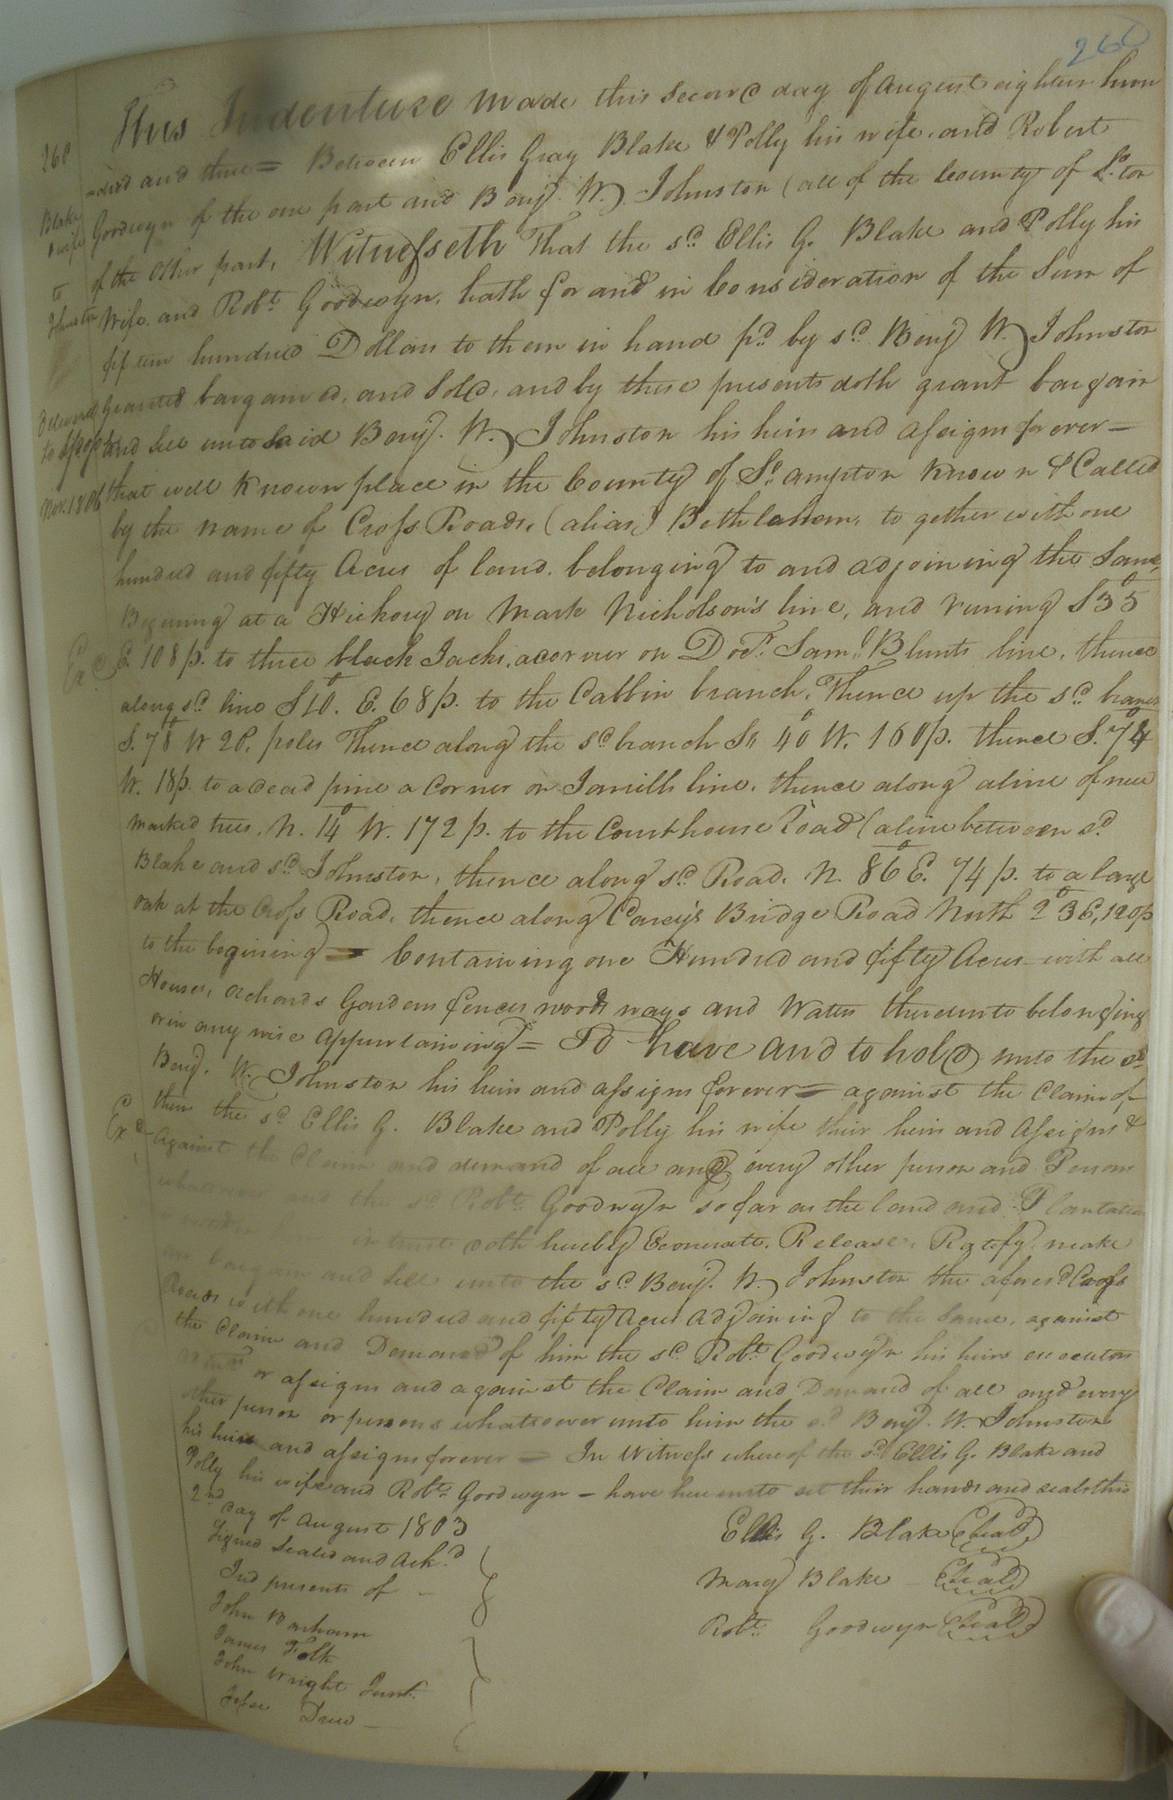 260
This Indenture made this second day of August eighteen hun
-dred and three = Between Ellis Gray Blake & Polly his wife and Robert
Goodwyn of the one part and Benj. W. Johnston (all of the County of So.ton
of the other part, Witnesseth That the sd. Ellis G. Blake and Polly his
Wife and Robt. Goodwyn, hath for and in Consideration of the Sum of
fifteen hundred Dollars to them in hand pd. by sd. Benj W. Johnston
granted bargained, and Sold, and by these presents doth grant bargain
and sell unto said Benj. W. Johnston his heirs and assigns forever —
that well known place in the County of So.ampton known & Called
by the name of Cross Roads, (alias) Bethlahem, to gether with one
hundred and fifty Acres of land belonging to and adjoining the Same,
Begining at a Hickory on Mark Nicholson's line, and runing S 35°
E. 108 p. to three black Jacks, a corner on Doctr. Saml. Blunts line, thence
along sd. line S 10°. E. 68 p. to the Cabbin branch, Thence up the sd. branch
S. 78° W 20, poles Thence along the sd branch So 40° W. 160 p. thence S. 74°
W. 18 p. to a dead pine a Corner on Jarrills line, thence along a line of new
marked trees, N. 14° W. 172 p. to the Courthouse Road (a line between sd
Blake and sd. Johnston, thence along sd. Road. N. 86° E. 74 p. to a large
oak at the Cross Road, thence along Carey's Bridge Road North 23° E, 120 p
to the begining = Containing one Hundred and fifty Acres with all
Houses, orchards Gardens fences woods ways and Waters thereunto belonging
or in any wise Appurtaining = To have and to hold unto the sd.
Benj. W. Johnston his heirs and assigns forever = against the Claim of
them the sd. Ellis G. Blake and Polly his wife their heirs and Assigns &
Against the Claim and demand of all and every other person and Persons
whatsoever and the sd. Robt. Goodwyn so far as the land and Plantation
in trust doth hereby Exonerate, Release, Ratify make
bargain and sell unto the sd. Benj. W. Johnston the aforesd Cross
Roads with one hundred and fifty Acres Adjoining to the Same, against
the Claim and Demand of him the sd. Robt. Goodwyn his heirs executors
or assigns and against the Claim and Demand of all and every
other person or persons whatsoever unto him the sd. Benj. W. Johnston
his heirs and assigns forever = In Witness whereof the sd. Ellis G. Blake and
Polly his wife and Robt. Goodwyn - have hereunto set their hands and seals this
2nd day of August 1803
Signed Sealed and Ackd.
Ind presents of
John Barham
James Folk
John Wright Junr.
Jesse Drew
Ellis G. Blake (Seal)
Mary Blake (Seal)
Robt. Goodwyn (Seal)
260
Blake
& wife
to
Johnston
Delivered
Nov. 1806
Exd.
Exd.